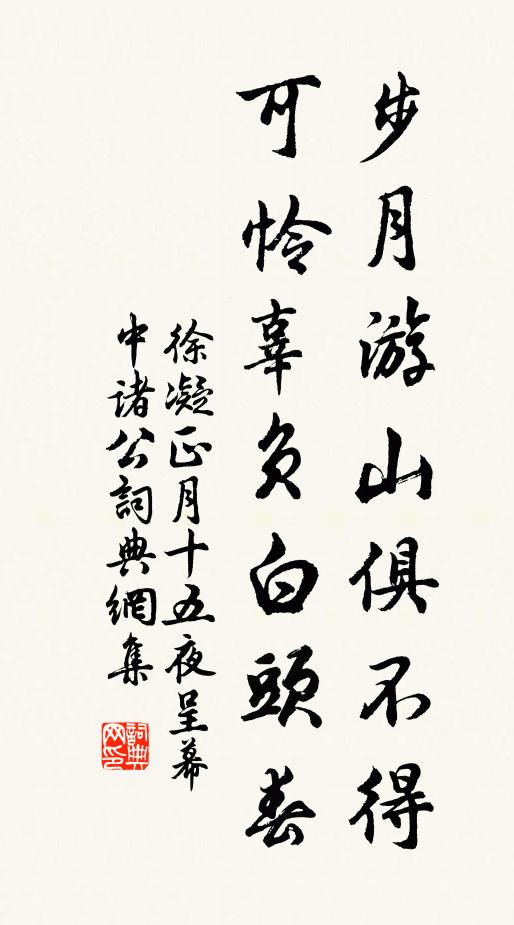 步月游山俱不得
可怜辜负白頭春
徐凝正月十五夜呈幕
中诸公詞典網集
詞典
网印